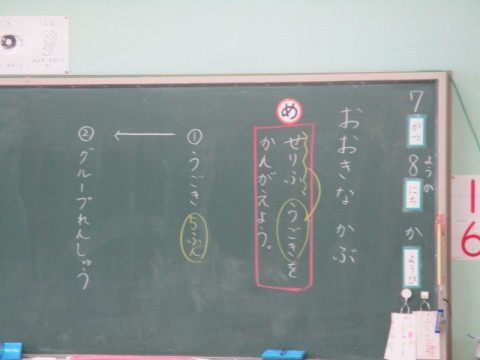 7がつ8にちかようび
ようか
おおきな かぶ
め
せりふ、うごきを
かんがえよう。
①うごき 5ふん
②グループれんしゅう
16